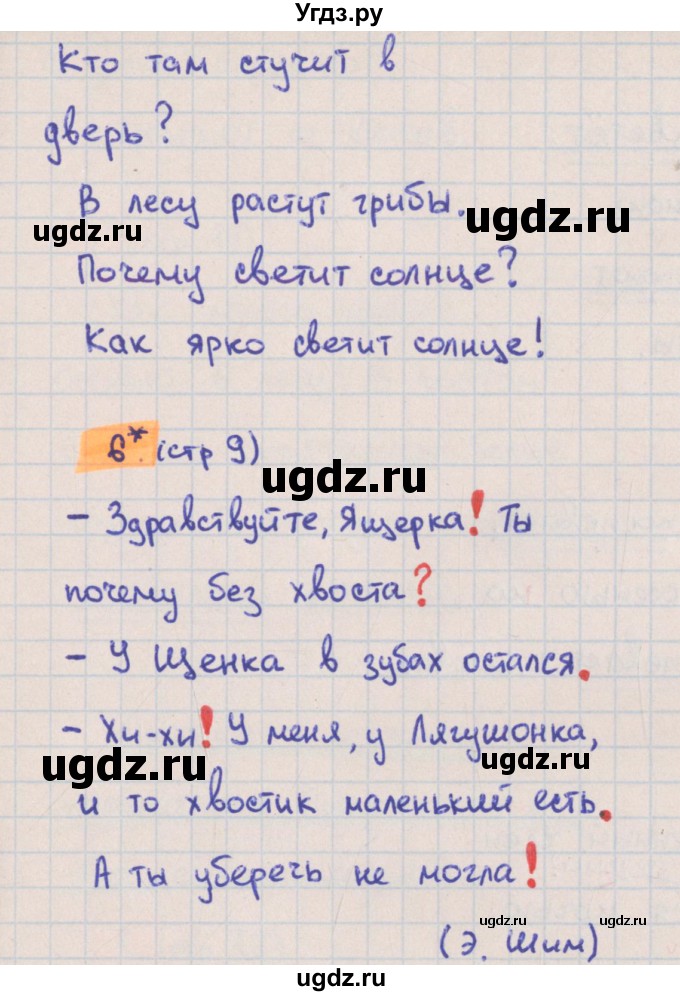 Угдз.ру
Кто там стучит в
дверь?
В лесу растут грибы.
ugdz.ru
ugdz.ru
Почему светит солнце?
Как ярко светит солнце!
6* (стр 9)
ugdz.ru
– Здравствуйте, Ящерка! Ты
почему без хвоста?
– У Щенка в зубах остался.
– Хи-хи! У меня, у Лягушонка,
ugdz.ru
ugdz.ru
и то хвостик маленький есть.
А ты уберечь не могла!
ugdz.ru
ugdz.ru
(Э. Шим)
ugdz.ru